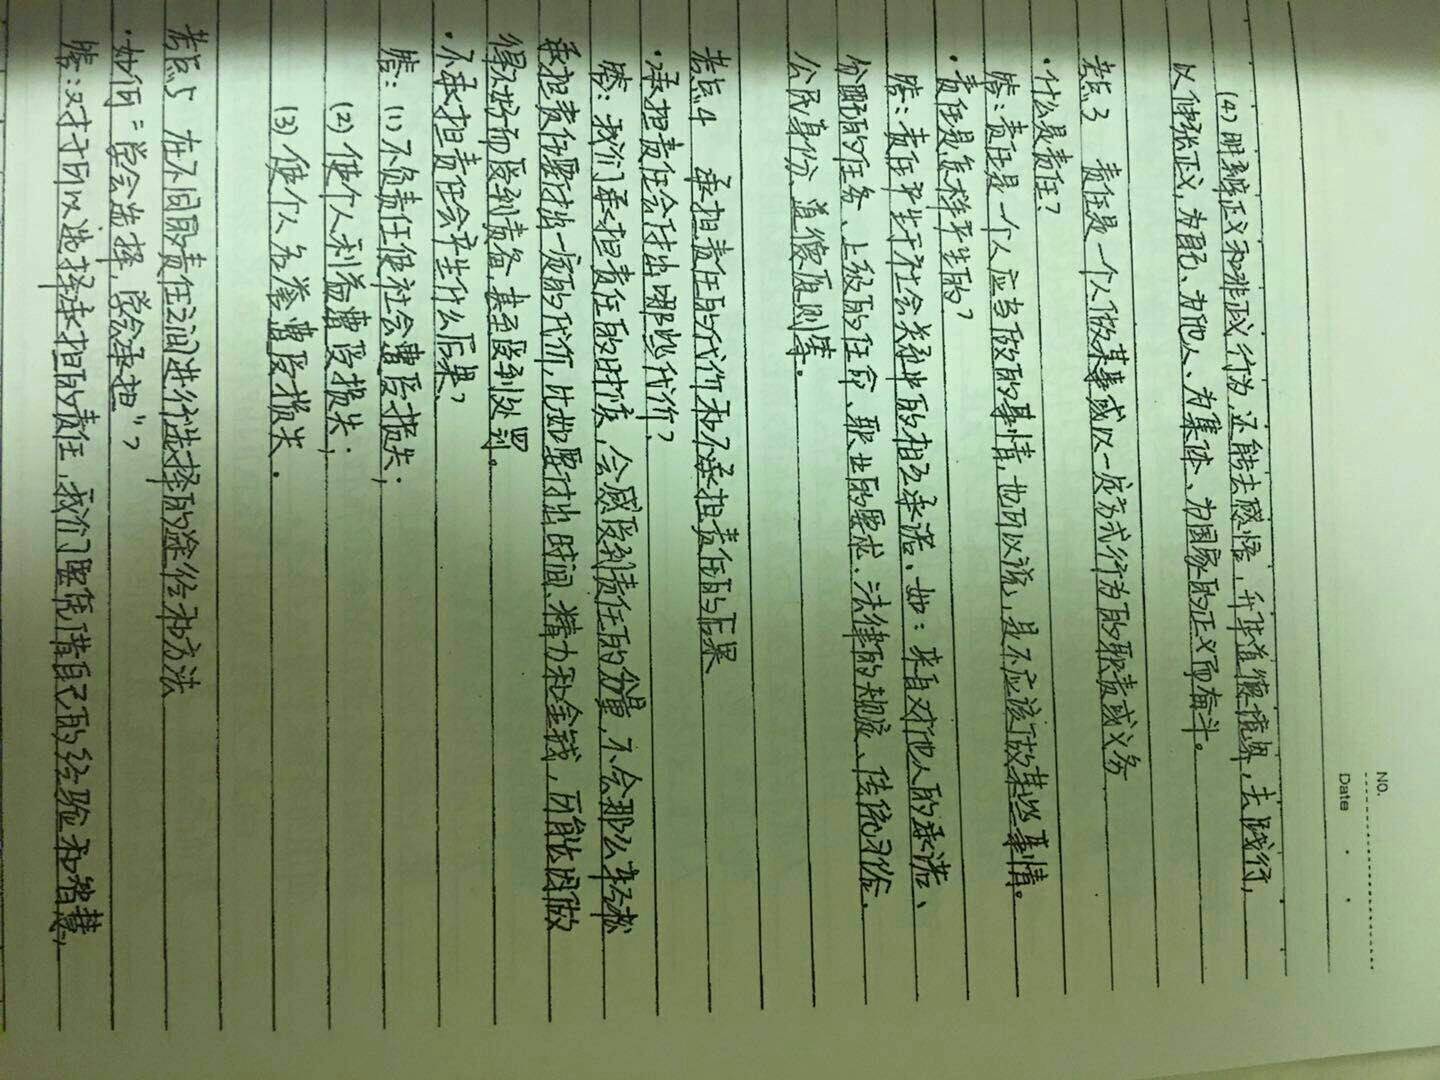 NO.
Date
(4) 明辨正义和非正义行为,还能去感悟,升华道德境界,去践行,
以伸张正义,为自己、为他人、为集体、为国家的正义而奋斗。
考点3 责任是一个人做某事或以一定方式行为的职责或义务
·什么是责任?
答:责任是一个人应当做的事情,也可以说,是不应该做某些事情。
·责任是怎样产生的?
答:责任产生于社会关系中的相互承诺。如:来自对他人的承诺、
分配的任务、上级的任命、职业的要求、法律的规定、传统习俗、
公民身份、道德原则等。
考点4 承担责任的代价和不承担责任的后果
·承担责任会付出哪些代价?
答:我们承担责任的时候,会感受到责任的分量,不会那么轻松
承担责任要付出一定的代价,比如要付出时间、精力和金钱,可能因做
得不好而受到责备,甚至受到处罚。
·不承担责任会产生什么后果?
答:(1)不负责任使社会遭受损失;
(2)使个人利益遭受损失;
(3)使个人名誉遭受损失.
考点5 在不同的责任之间进行选择的途径和方法
·如何"学会选择,学会承担"?
答:对于可以选择承担的责任,我们要凭借自己的经验和智慧,